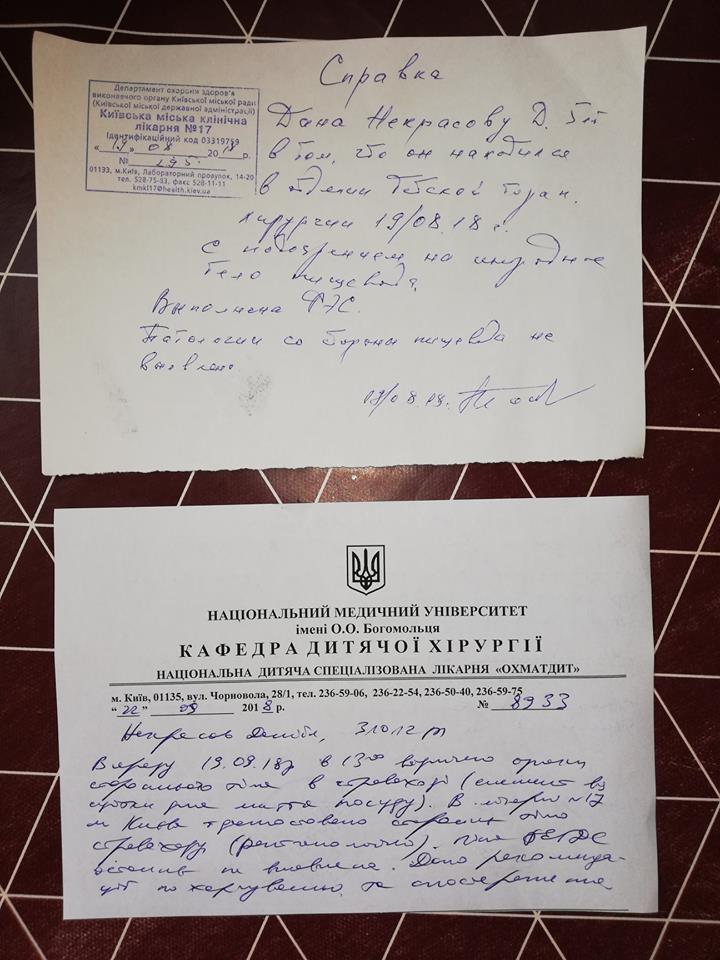 Справка
Департамент охорони здоров'я
виконавчого органу Київської міської ради
(Київської міської державної адміністрації)
Київська міська клінічна
лікарня №17
Ідентифікаційний код 03319759
«19» 08 2018 р.
№ 295
01133, м.Київ, Лабораторний провулок, 14-20
тел. 528-75-33, факс 528-11-11
kmkl17@health.kiev.ua
Дана Некрасову Д.
в том, что он находился
в
хирургии 19/08.18 г.
с подозрением на инородное
тело пищевода.
Выполнена ФЭС.
Патологии со стороны пищевода не
выявлено.
НАЦІОНАЛЬНИЙ МЕДИЧНИЙ УНІВЕРСИТЕТ
імені О.О. Богомольця
КАФЕДРА ДИТЯЧОЇ ХІРУРГІЇ
НАЦІОНАЛЬНА ДИТЯЧА СПЕЦІАЛІЗОВАНА ЛІКАРНЯ «ОХМАТДИТ»
м. Київ, 01135, вул. Чорновола, 28/1, тел. 236-59-06, 236-22-54, 236-50-40, 236-59-75
“22” 09 2018 р. № 8933
Некрасов
19.09.18р в 13⁰⁰
тіло в стравоході (елемент
миття посуду). В
м Києва стороннє тіло
стравоходу (рентгенологічно). Після ФЕГДС
не виявлено. Дано рекоменда-
ції по харчуванню та спостереження